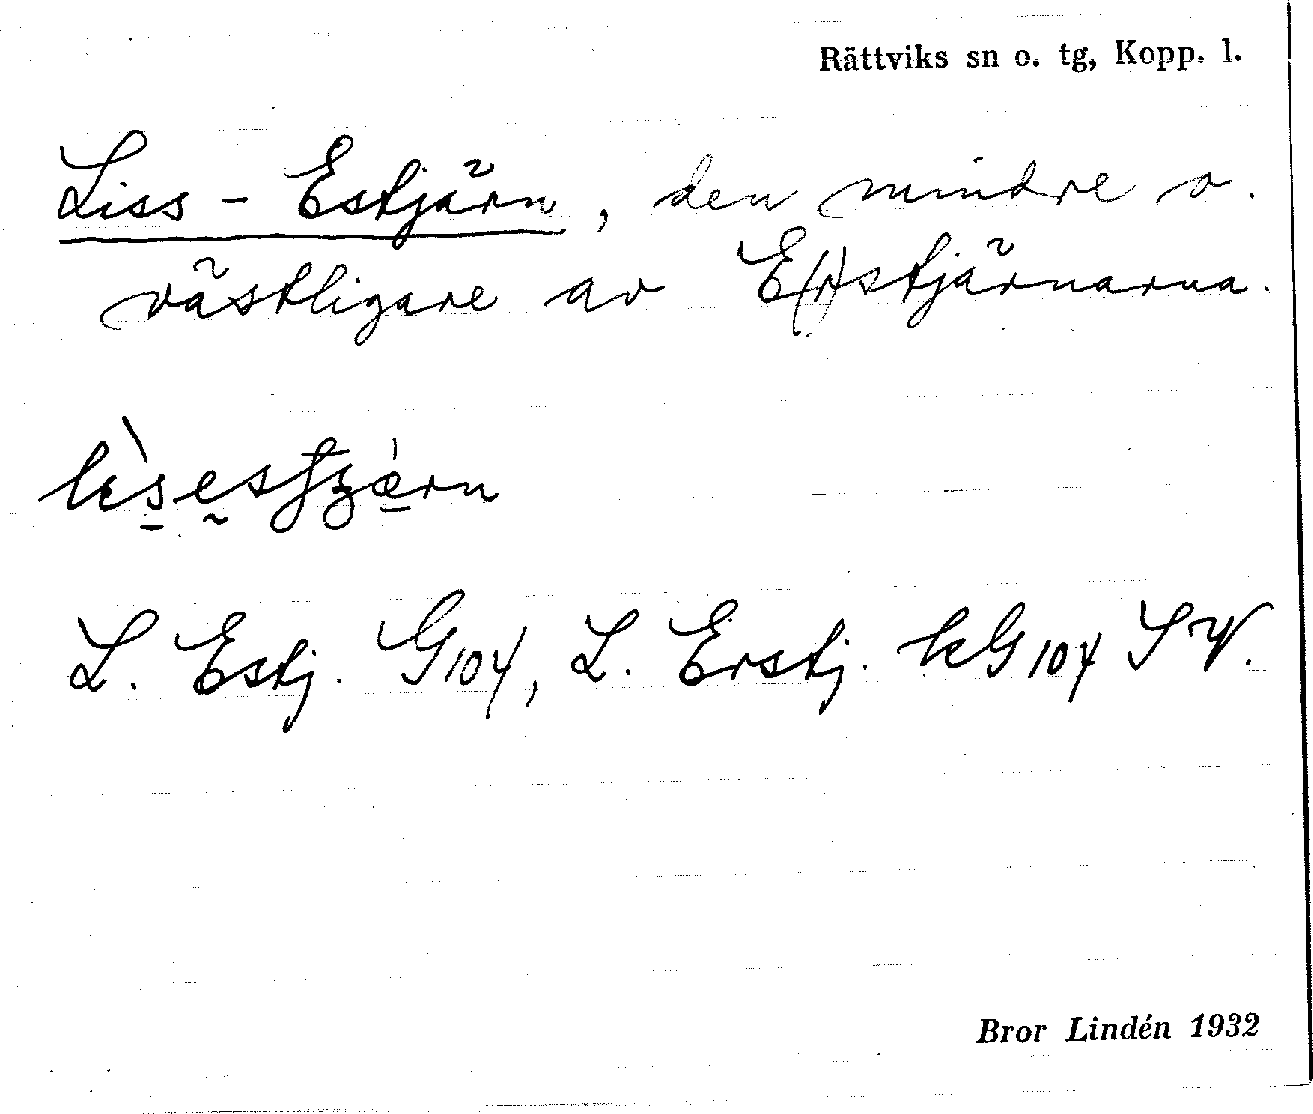 Rättviks sn o. tg, Kopp. l.
Liss-Estjärn, den mindre o.
västligare av E(r)stjärnarna.
L. Estj. G104, L. Erstj. kG104 SV.
Bror Lindén 1932